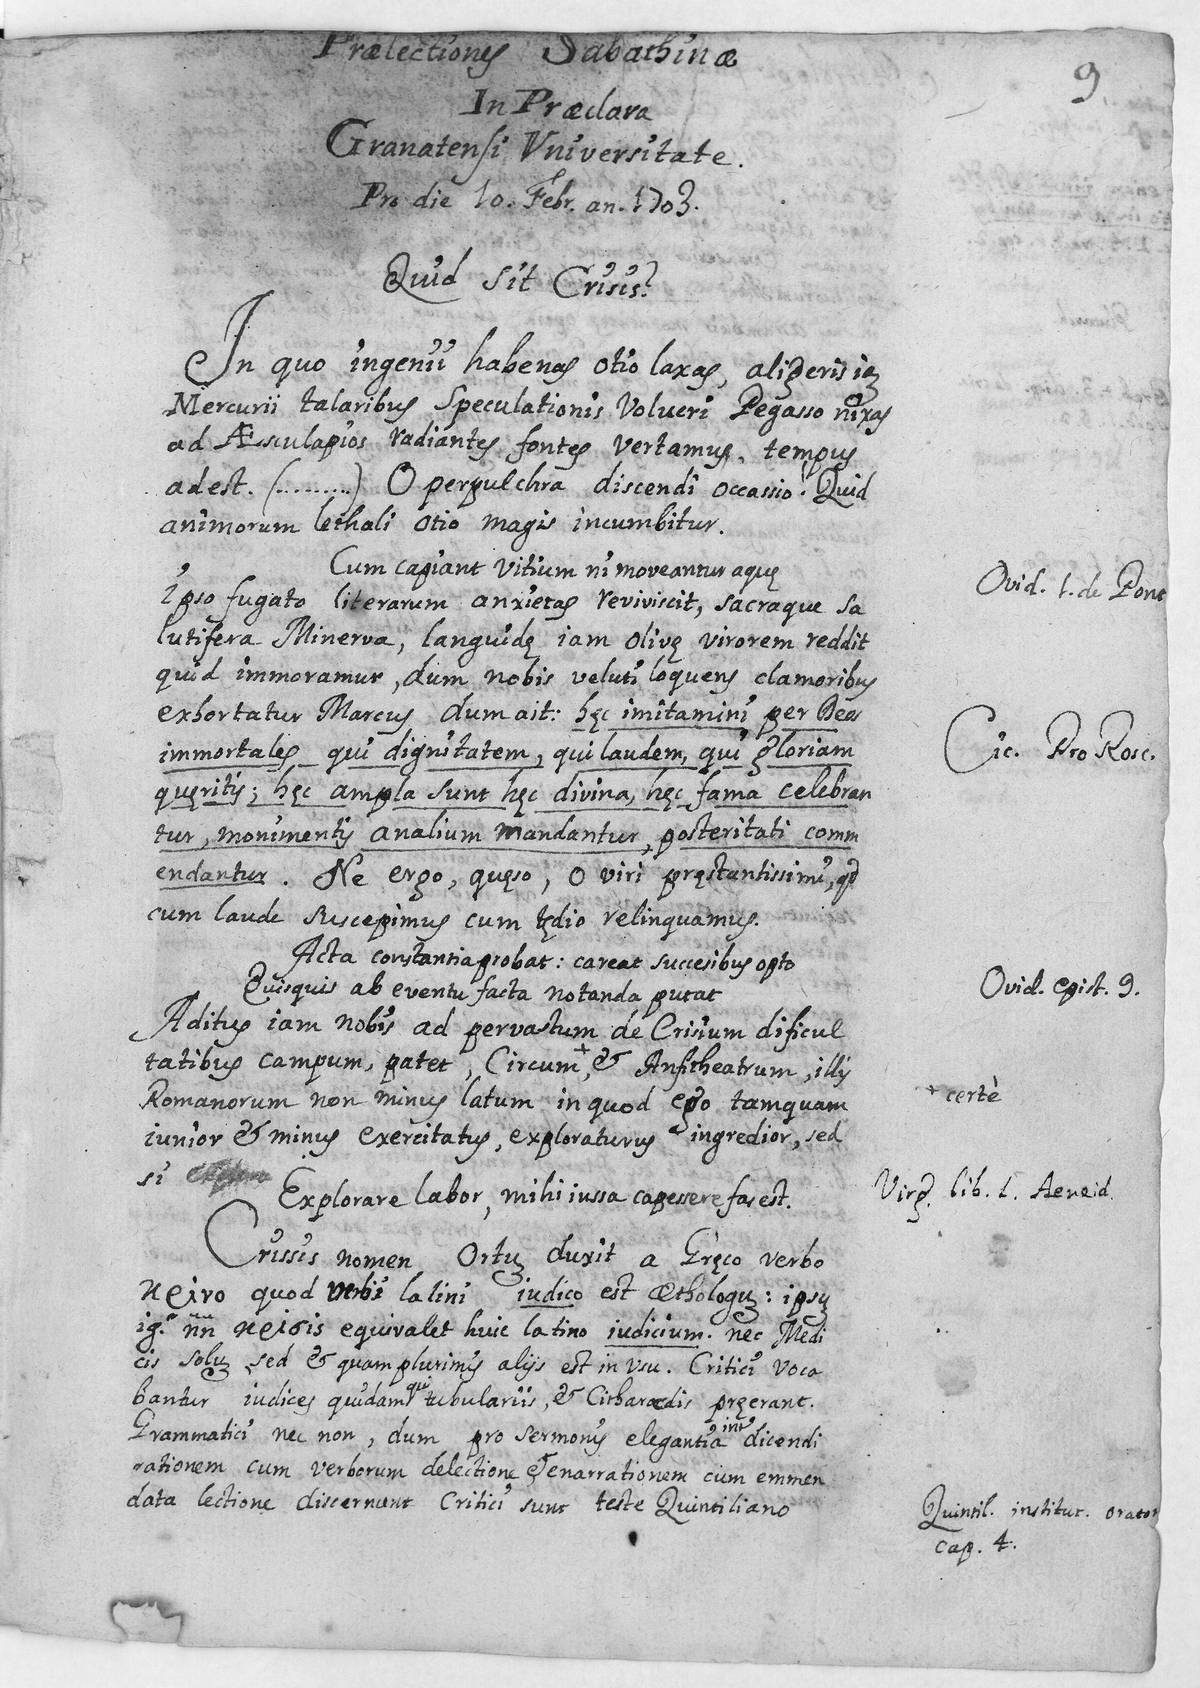 9
Prælectiones Sabathinæ
In Præclara
Granatensi Vniversitate.
Pro die 10. Febr. an. 1703.
Quid sit Crisis?
In quo ingenii habenas otio laxas, aligeris
Mercurii talaribus speculationis volucri Pegasso nixas
ad Æsculapios radiantes fontes vertamus, tempus
adest. (.........) O perpulchra discendi occassio! Quid
animorum lethali otio magis incumbitur.
Cum capiant vitium ni moveantur aquę
Ovid. 1. de Pont
Ipso fugato literarum anxietas reviviscit, sacraque sa
lutifera Minerva, languidę iam olivę virorem reddit
quid immoramur, dum nobis veluti loquens clamoribus
exhortatur Marcus dum ait: hęc imitamini per Deos
immortales qui dignitatem, qui laudem, qui gloriam
Cic. Pro Rosc.
quęritis; hęc ampla sunt hęc divina, hęc fama celebran
tur, monumentis analium mandantur, posteritati comm
endantur. Ne ergo, quęso, o viri pręstantissimi, qd
cum laude suscepimus cum tędio relinquamus.
Acta constantia probat: careat succesibus opto
Quisquis ab eventu facta notanda putat
Ovid. epist. 9.
Aditus iam nobis ad pervastum de Crisium dificul
tatibus campum, patet, Circum+, & Anfitheatrum, illis
+ certè
Romanorum non minus latum in quod ego tamquam
iunior & minus exercitatus, exploraturus ingredior, sed
si
Explorare labor, mihi iussa capessere fas est.
Virg. lib. 1. Aeneid.
Crissis nomen ortu duxit a Gręco verbo
κρινο quod verbi latini iudico est æthologu: ipsu
ig.r nn κρισις equivalet huic latino iudicium. nec Medi
cis solu sed & quam plurimis alijs est in vsu. Critici voca
bantur iudices quidam qui tubulariis, & Citharædis pręerant.
Grammatici nec non, dum pro sermonis elegantia int dicendi
rationem cum verborum delectione & enarrationem cum emmen
data lectione discernunt Critici sunt teste Quintiliano
Quintil. institut. orator
cap. 4.